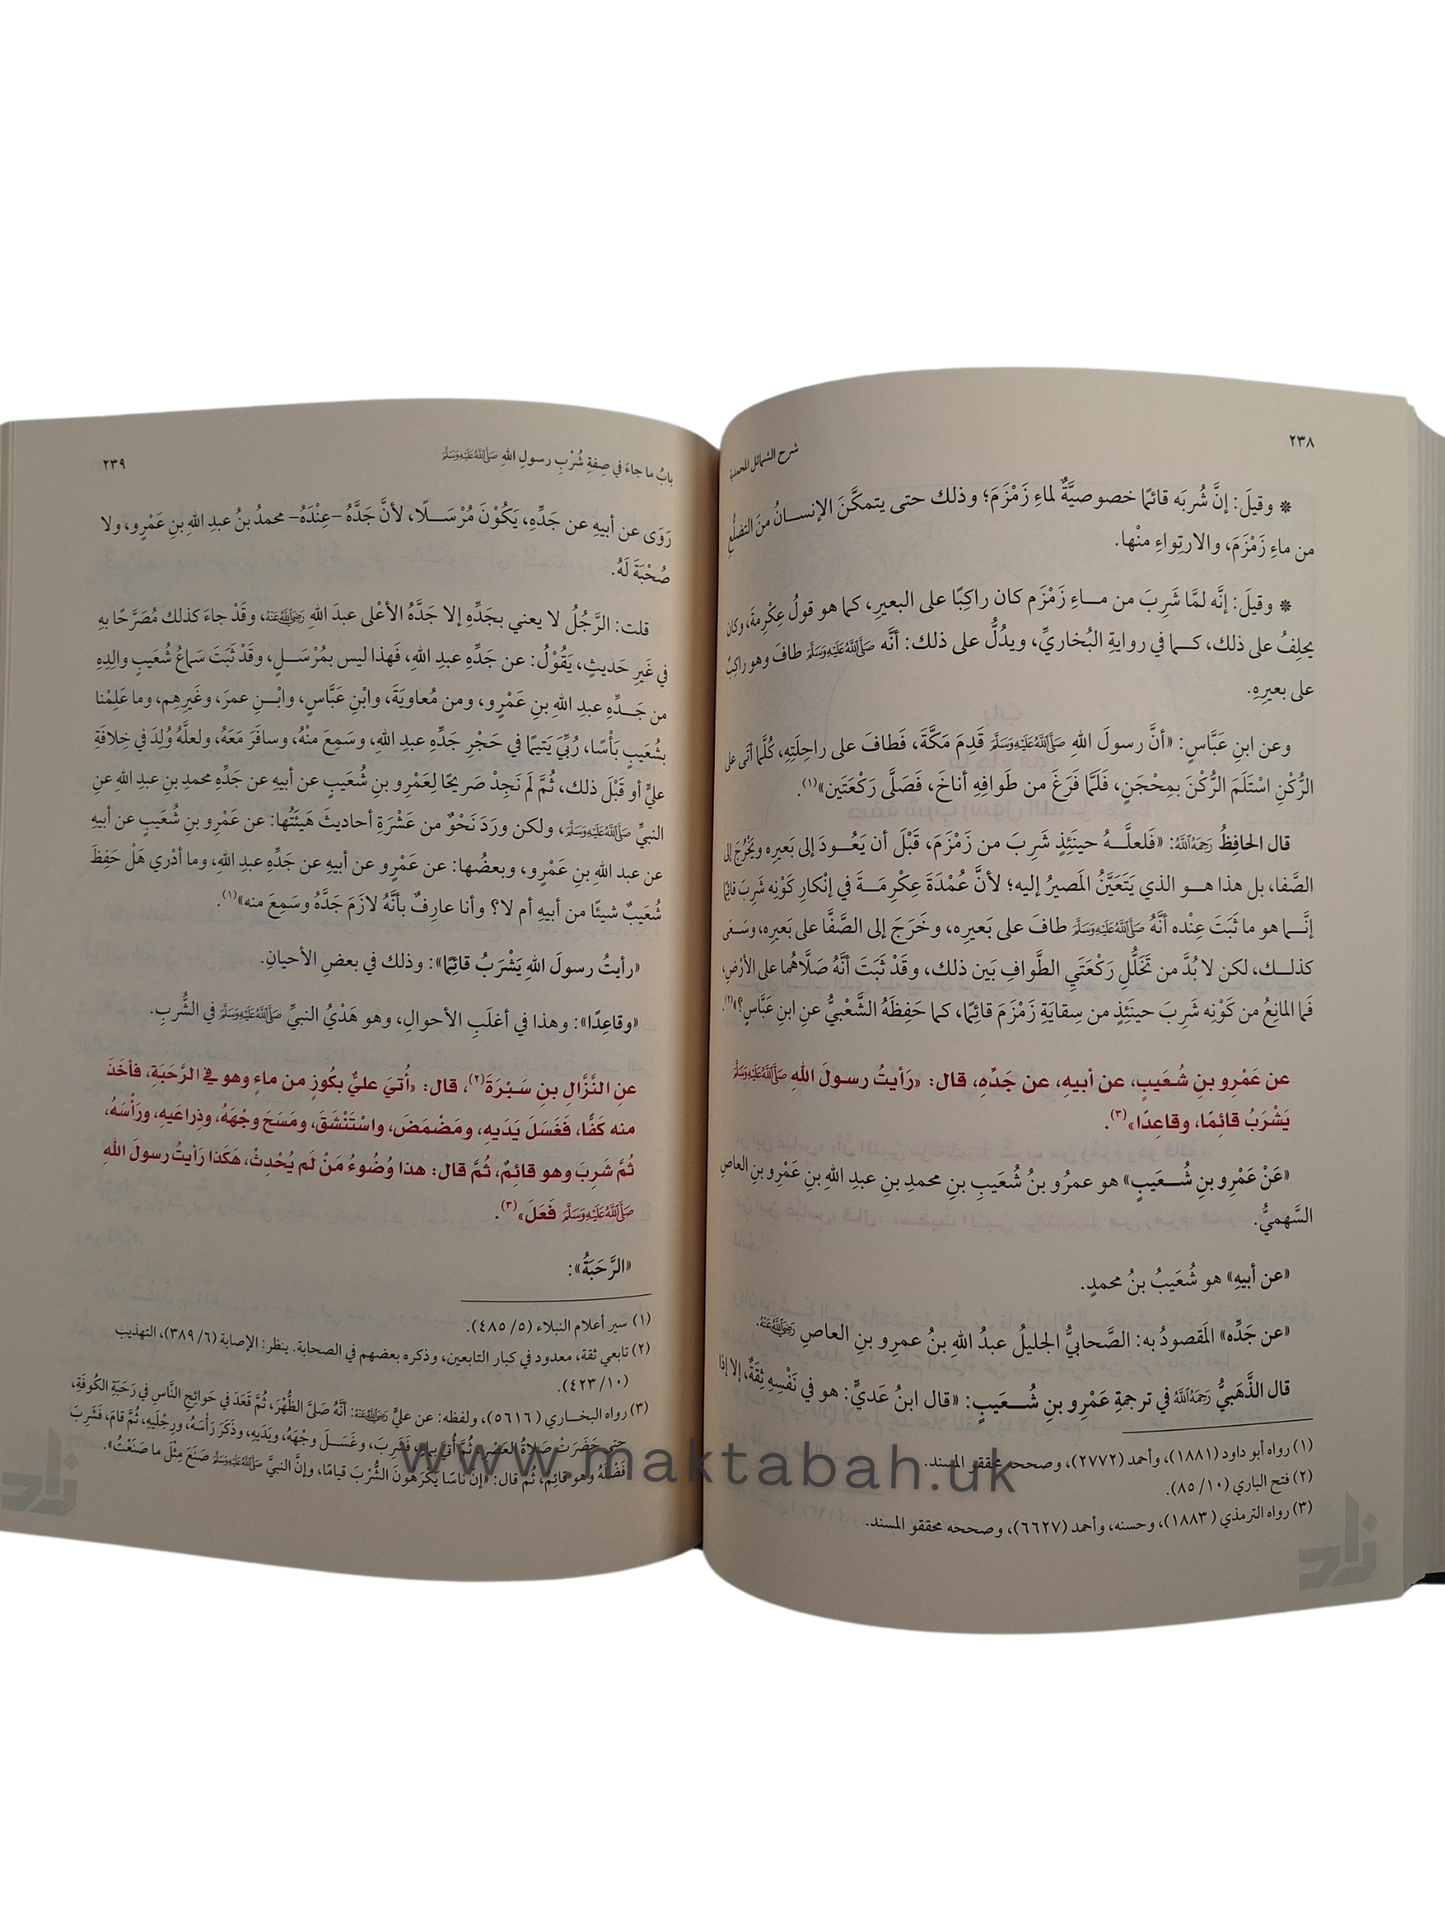 ٢٣٨
شرح الشمائل المحمدية
* وقيلَ: إنَّ شُربَه قائمًا خصوصيَّةٌ لماءِ زَمْزَمَ؛ وذلك حتى يتمكَّنَ الإنسانُ منَ التضلُّعِ
من ماءِ زَمْزَمَ، والارتِواءِ منْها.
* وقيلَ: إنَّه لمَّا شَرِبَ من ماءِ زَمْزَم كان راكِبًا على البعيرِ، كما هو قولُ عِكْرِمةَ، وكان
يحلِفُ على ذلك، كما في روايةِ البُخاريِّ، ويدُلُّ على ذلك: أنَّه ﷺ طافَ وهو راكِبٌ
على بعيرِهِ.
وعن ابنِ عَبَّاسٍ: «أنَّ رسولَ اللهِ ﷺ قَدِمَ مَكَّةَ، فَطافَ على راحِلَتِهِ، كُلَّما أتَى على
الرُّكْنِ اسْتَلَمَ الرُّكْنَ بمِحْجَنٍ، فَلَمَّا فَرَغَ من طَوافِهِ أناخَ، فَصَلَّى رَكْعَتَين»(١).
قال الحافِظُ رَحِمَهُ اللَّهُ: «فَلعلَّهُ حينَئِذٍ شَرِبَ من زَمْزَمَ، قَبْلَ أن يَعُودَ إلى بَعيرِه ويَخْرُجَ إلى
الصَّفا، بل هذا هو الذي يَتَعَيَّنُ المَصيرُ إليه؛ لأنَّ عُمْدَةَ عِكْرِمَةَ في إنْكارِ كَوْنِه شَرِبَ قائمًا
إنَّما هو ما ثَبَتَ عِنْده أنَّهُ ﷺ طافَ على بَعيرِه، وخَرَجَ إلى الصَّفَّا على بَعيرِه، وسَعَى
كذلك، لكن لا بُدَّ من تَخَلُّلِ رَكْعَتَيِ الطَّوافِ بَين ذلك، وقَدْ ثَبَتَ أنَّهُ صَلَّاهُما على الأرْضِ،
فَما المانِعُ من كَوْنِه شَرِبَ حينَئِذٍ من سِقايَةِ زَمْزَمَ قائِمًا، كما حَفِظَهُ الشَّعْبيُّ عنِ ابنِ عَبَّاسٍ؟»(٢).
عن عَمْرِو بنِ شُعَيبٍ، عن أبيهِ، عن جَدِّهِ، قال: «رَأيتُ رسولَ اللهِ ﷺ
يَشْرَبُ قائِمًا، وقاعِدًا»(٣).
«عَنْ عَمْرِو بنِ شُعَيبٍ» هو عمرُو بنُ شُعَيبِ بنِ محمدِ بنِ عبدِ اللهِ بنِ عَمْرِو بنِ العاصِ
السَّهميُّ.
«عن أبيهِ» هو شُعَيبُ بنُ محمدٍ.
«عن جَدِّه» المَقصودُ به: الصَّحابيُّ الجليلُ عبدُ اللهِ بنُ عمرِو بنِ العاصِ رَضِيَ اللَّهُ عَنْهُ.
قال الذَّهَبيُّ رَحِمَهُ اللَّهُ في ترجمةِ عَمْرِو بنِ شُعَيبٍ: «قال ابنُ عَديٍّ: هو في نَفْسِهِ ثِقَةٌ، إلا إذا
(١) رواه أبو داود (١٨٨١)، وأحمد (٢٧٧٢)، وصححه محققو المسند.
(٢) فتح الباري (١٠/ ٨٥).
(٣) رواه الترمذي (١٨٨٣)، وحسنه، وأحمد (٦٦٢٧)، وصححه محققو المسند.
بابُ ما جاءَ في صِفةِ شُرْبِ رسولِ اللهِ ﷺ
٢٣٩
رَوَى عن أبيهِ عن جَدِّهِ، يَكُوْنَ مُرْسَلًا، لأنَّ جَدَّهُ -عِنْدَهُ- محمدُ بنُ عبدِ اللهِ بنِ عَمْرٍو، ولا
صُحْبَةَ لَهُ.
قلت: الرَّجُلُ لا يعني بجَدِّهِ إلا جَدَّهُ الأعْلى عبدَ اللهِ رَضِيَ اللَّهُ عَنْهُ، وقَدْ جاءَ كذلك مُصَرَّحًا بهِ
في غَيرِ حَديثٍ، يَقُوْلُ: عن جَدِّهِ عبدِ اللهِ، فَهذا ليس بمُرْسَلٍ، وقَدْ ثَبَتَ سَماعُ شُعَيبٍ والِدِهِ
من جَدِّهِ عبدِ اللهِ بنِ عَمْرٍو، ومن مُعاويَةَ، وابْنِ عَبَّاسٍ، وابْنِ عمرَ، وغَيرِهِم، وما عَلِمْنا
بشُعَيبٍ بَأْسًا، رُبِّيَ يَتيمًا في حَجْرِ جَدِّهِ عبدِ اللهِ، وسَمِعَ منْهُ، وسافَرَ مَعَهُ، ولعلَّهُ وُلِدَ في خِلافَةِ
عليٍّ أو قَبْلَ ذلك، ثُمَّ لَم نَجِدْ صَريحًا لِعَمْرِو بنِ شُعَيبٍ عن أبيهِ عن جَدِّهِ محمدِ بنِ عبدِ اللهِ عنِ
النبيِّ ﷺ، ولكن ورَدَ نَحْوٌ من عَشْرَةِ أحاديثَ هَيئَتُها: عن عَمْرِو بنِ شُعَيبٍ عن أبيهِ
عن عبد اللهِ بنِ عَمْرٍو، وبعضُها: عن عَمْرٍو عن أبيهِ عن جَدِّهِ عبدِ اللهِ، وما أدْري هَلْ حَفِظَ
شُعَيبٌ شيئًا من أبيهِ أم لا؟ وأنا عارِفٌ بأنَّهُ لازَمَ جَدَّهُ وسَمِعَ منه»(١).
«رأيتُ رسولَ اللهِ يَشْرَبُ قائِمًا»: وذلك في بعضِ الأحيانِ.
«وقاعِدًا»: وهذا في أغلَبِ الأحوالِ، وهو هَدْيُ النبيِّ ﷺ في الشُّربِ.
عنِ النَّزَّالِ بنِ سَبْرَةَ(٢)، قال: «أُتيَ عليٌّ بكُوزٍ من ماءٍ وهو في الرَّحَبَةِ، فأخَذَ
منه كَفًّا، فَغَسَلَ يَدَيهِ، ومَضْمَضَ، واسْتَنْشَقَ، ومَسَحَ وجْهَهُ، وذِراعَيهِ، ورَأْسَهُ،
ثُمَّ شَرِبَ وهو قائِمٌ، ثُمَّ قال: هذا وُضُوءُ مَنْ لَم يُحْدِثْ، هَكَذا رَأيتُ رسولَ اللهِ
ﷺ فَعَلَ»(٣).
«الرَّحَبَةُ»:
(١) سير أعلام النبلاء (٥/ ٤٨٥).
(٢) تابعي ثقة، معدود في كبار التابعين، وذكره بعضهم في الصحابة. ينظر: الإصابة (٦/ ٣٨٩)، التهذيب
(١٠/ ٤٢٣).
(٣) رواه البخاري (٥٦١٦)، ولفظه: عن عليٍّ رَضِيَ اللَّهُ عَنْهُ: أنَّهُ صَلَّى الظُّهْرَ، ثُمَّ قَعَدَ في حَوائِجِ النَّاسِ في رَحَبَةِ الكُوفَةِ،
حتى حَضَرَتْ صَلاةُ العَصْرِ، ثُمَّ أُتيَ بماءٍ، فَشَرِبَ، وغَسَلَ وجْهَهُ، ويَدَيهِ، وذَكَرَ رَأْسَهُ، ورِجْلَيهِ، ثُمَّ قامَ، فَشَرِبَ
فَضْلَهُ وهو قائِمٌ، ثُم قال: «إنَّ ناسًا يَكْرَهُونَ الشُّرْبَ قيامًا، وإنَّ النبيَّ ﷺ صَنَعَ مِثْلَ ما صَنَعْتُ».
www.maktabah.uk
زاد
زاد